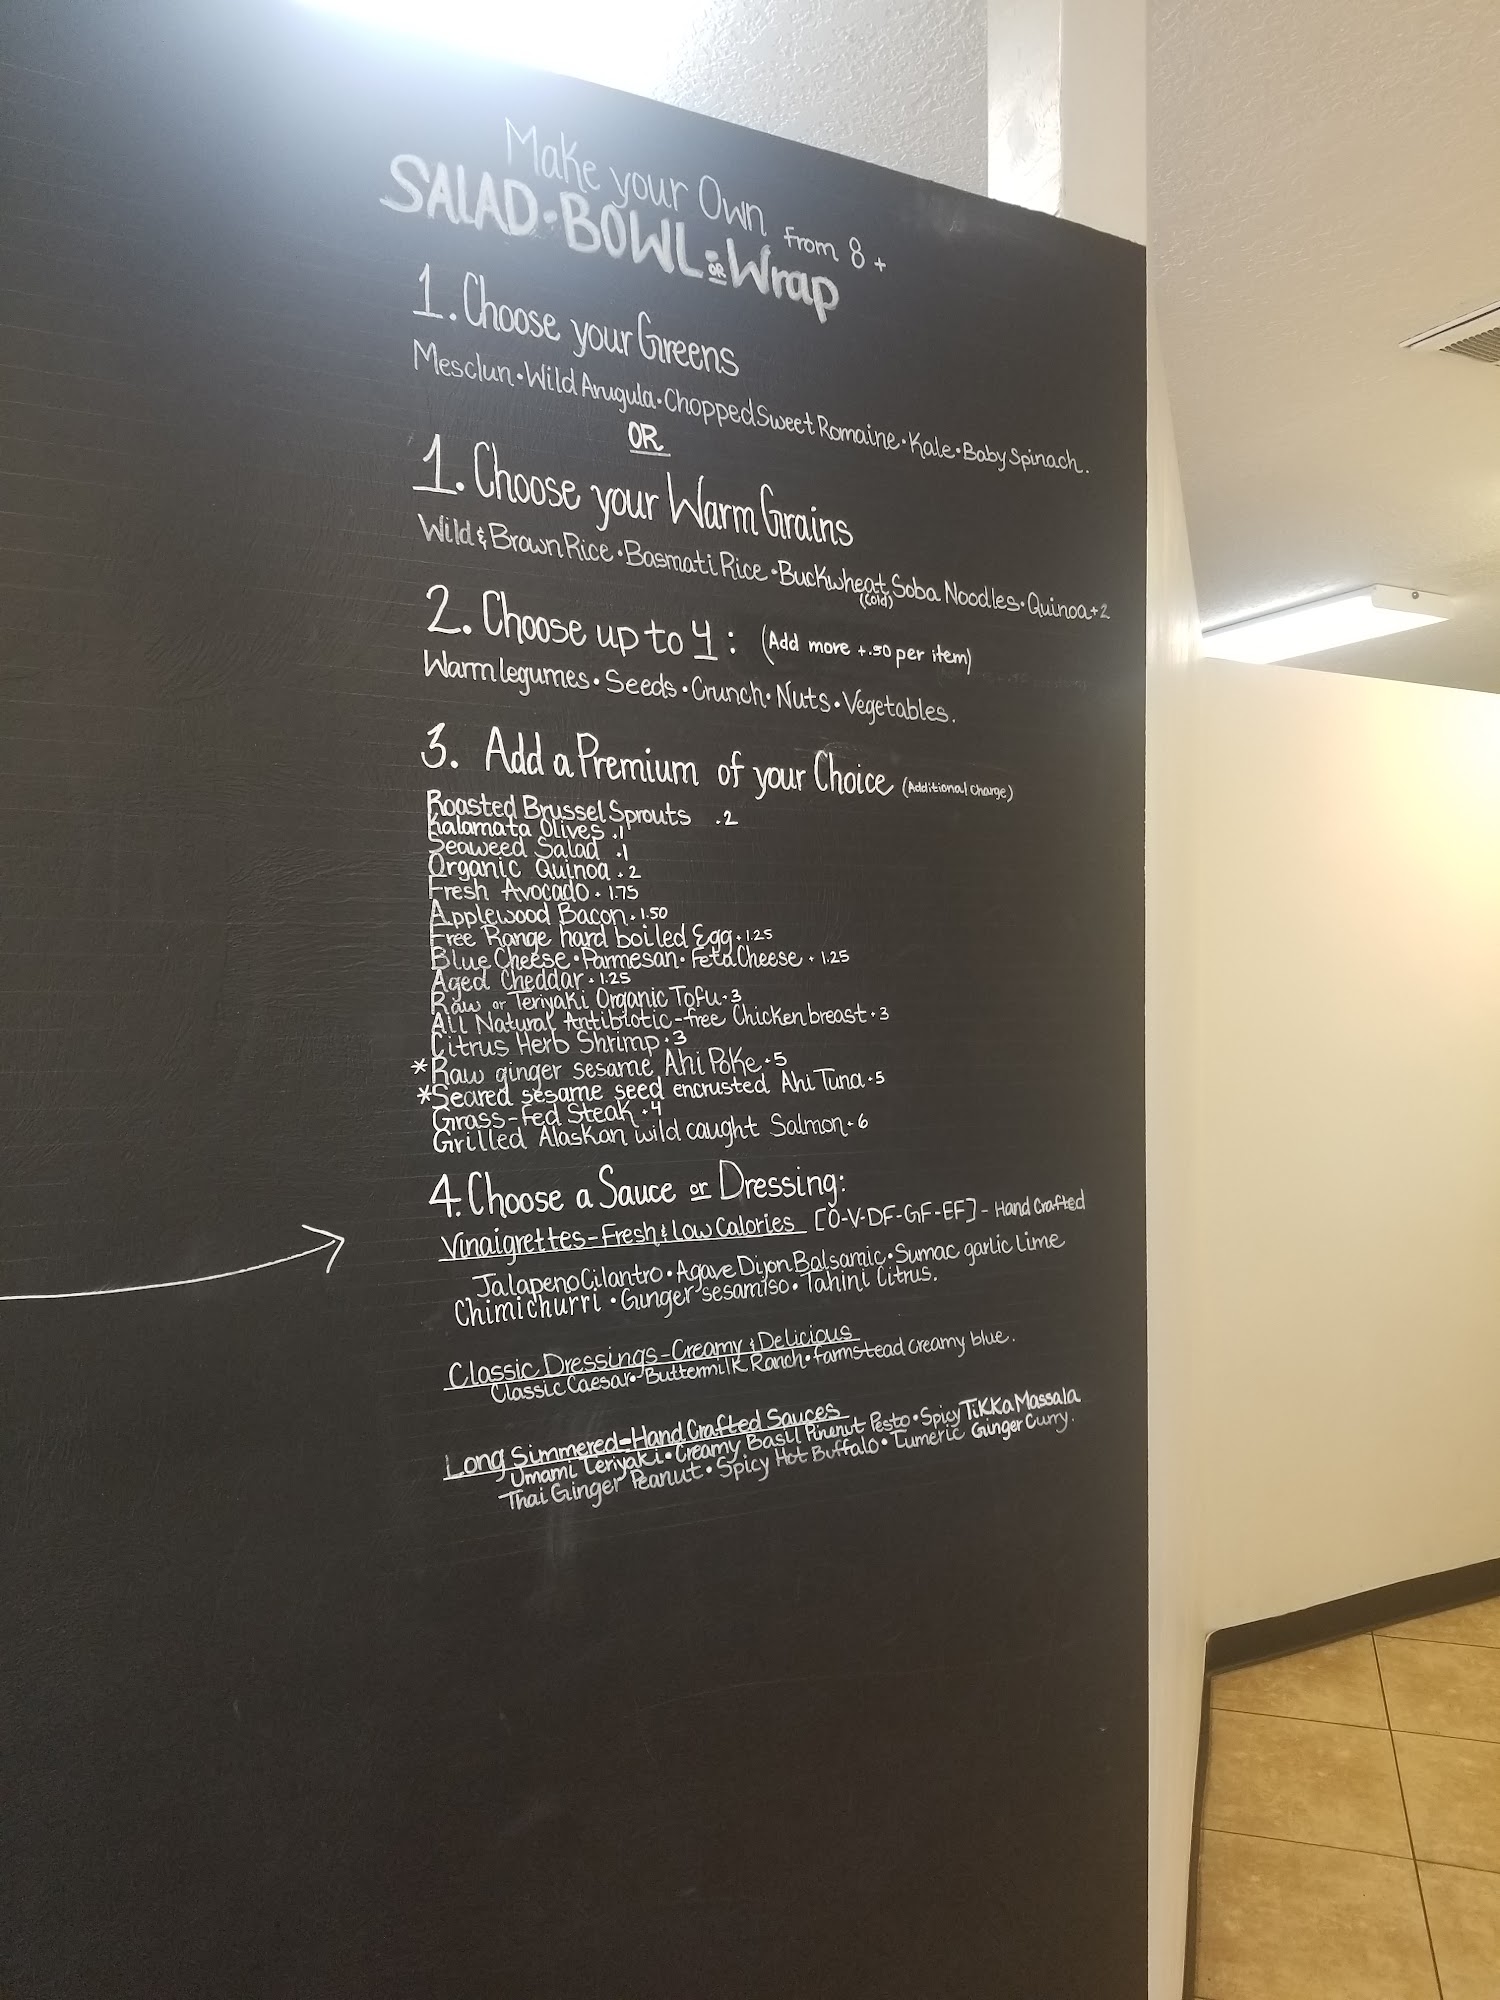 Make your Own from 8+
SALAD·BOWL OR Wrap
1. Choose your Greens
Mesclun·Wild Arugula·Chopped Sweet Romaine·Kale·Baby Spinach.
OR
1. Choose your Warm Grains
Wild & Brown Rice·Basmati Rice·Buckwheat Soba Noodles·Quinoa+2
(cold)
2. Choose up to 4: (Add more +.50 per item)
Warm legumes·Seeds·Crunch·Nuts·Vegetables.
3. Add a Premium of your Choice (Additional Charge)
Roasted Brussel Sprouts .2
Kalamata Olives .1
Seaweed Salad .1
Organic Quinoa .2
Fresh Avocado · 1.75
Applewood Bacon · 1.50
Free Range hard boiled Egg · 1.25
Blue Cheese · Parmesan · Feta Cheese · 1.25
Aged Cheddar · 1.25
Raw or Teriyaki Organic Tofu · 3
All Natural Antibiotic-free Chicken breast · 3
Citrus Herb Shrimp · 3
*Raw ginger sesame Ahi Poke · 5
*Seared sesame seed encrusted Ahi Tuna · 5
Grass-fed Steak · 4
Grilled Alaskan wild caught Salmon · 6
4. Choose a Sauce or Dressing:
Vinaigrettes-Fresh & Low Calories [O-V-DF-GF-EF] - Hand Crafted
Jalapeno Cilantro · Agave Dijon Balsamic · Sumac garlic Lime
Chimichurri · Ginger sesamiso · Tahini Citrus.
Classic Dressings-Creamy & Delicious
Classic Caesar · Buttermilk Ranch · farmstead creamy blue.
Long Simmered-Hand Crafted Sauces
Umami Teriyaki · Creamy Basil Pinenut Pesto · Spicy Tikka Massala
Thai Ginger Peanut · Spicy Hot Buffalo · Tumeric Ginger Curry.